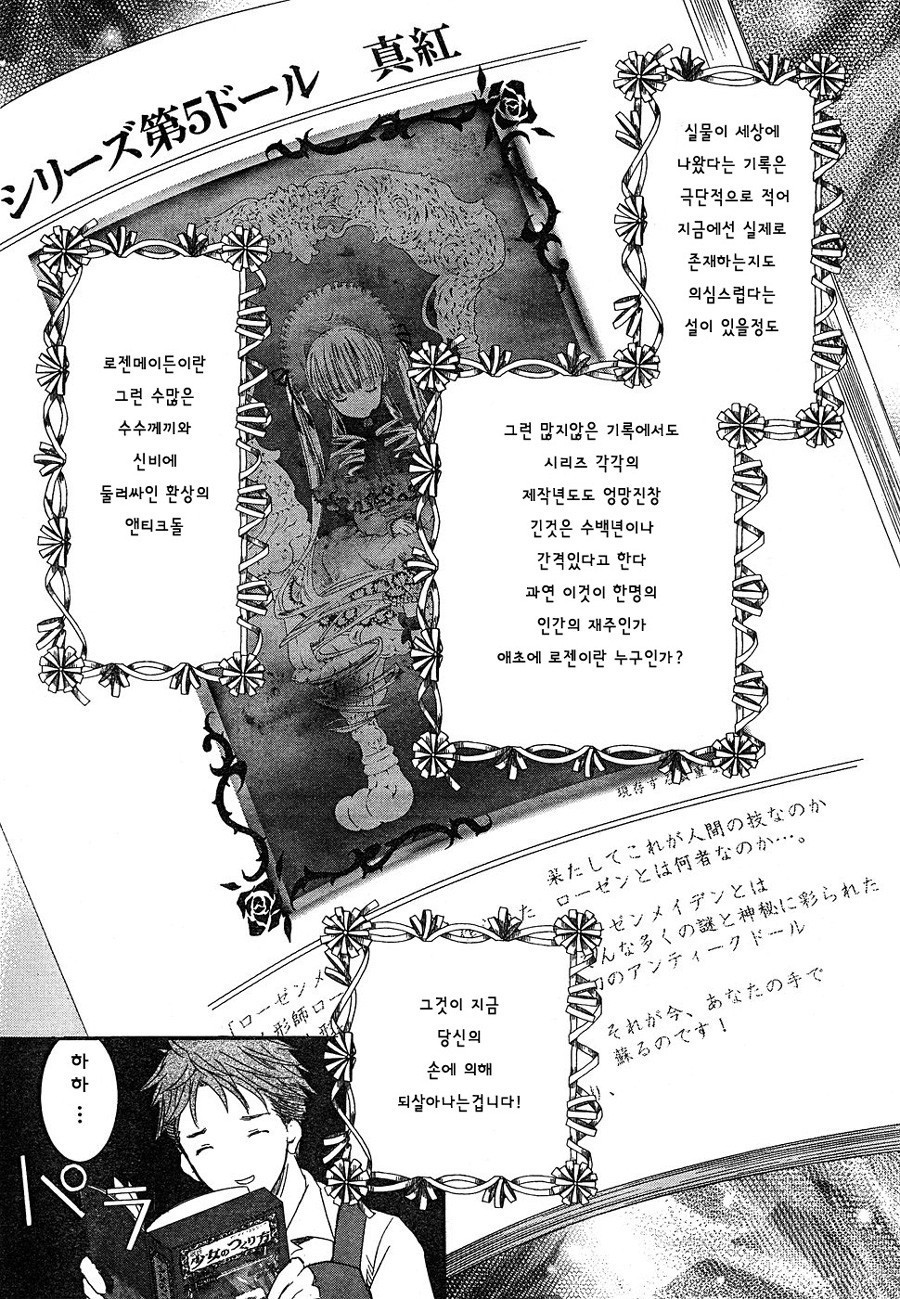 シリーズ第5ドール 真紅
실물이 세상에
나왔다는 기록은
극단적으로 적어
지금에선 실제로
존재하는지도
의심스럽다는
설이 있을정도
그런 많지않은 기록에서도
시리즈 각각의
제작년도도 엉망진창
긴것은 수백년이나
간격있다고 한다
과연 이것이 한명의
인간의 재주인가
애초에 로젠이란 누구인가?
로젠메이든이란
그런 수많은
수수께끼와
신비에
둘러싸인 환상의
앤티크돌
現存す
果たしてこれが人間の技なのか
ローゼンとは何者なのか…。
ゼンメイデンとは
んな多くの謎と神秘に彩られた
のアンティークドール
それが今、あなたの手で
蘇るのです!
「ローゼンメ
形師ロー
그것이 지금
당신의
손에 의해
되살아나는겁니다!
하
하
…
パラ
少女のつくり方